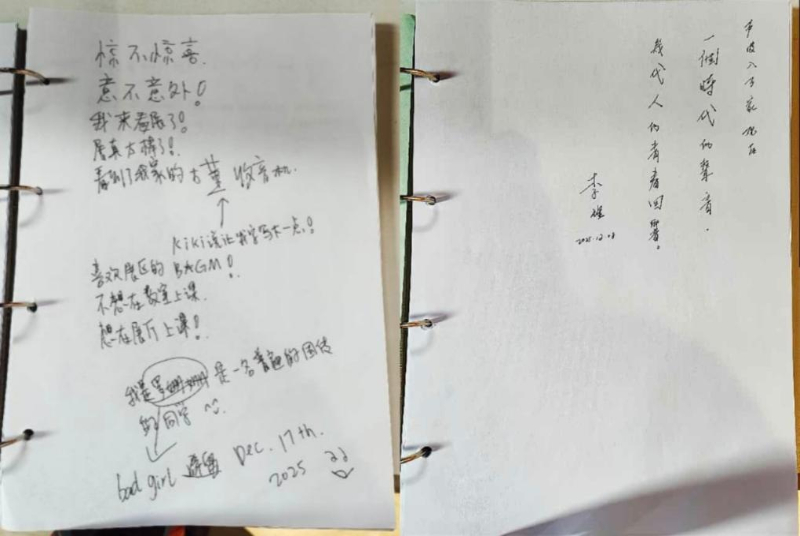 惊不惊喜
意不意外!
我来看展了!
展真太棒了!
看到了我家的古董收音机.
↑
kiki说让我字写大一点!
喜欢展区的 BGM!
不想在教室上课.
想在展厅上课!
我是 是一名普通的
的同学
bad girl Dec. 17th.
2025
一個時代的聲音.
幾代人的青春回響.
李